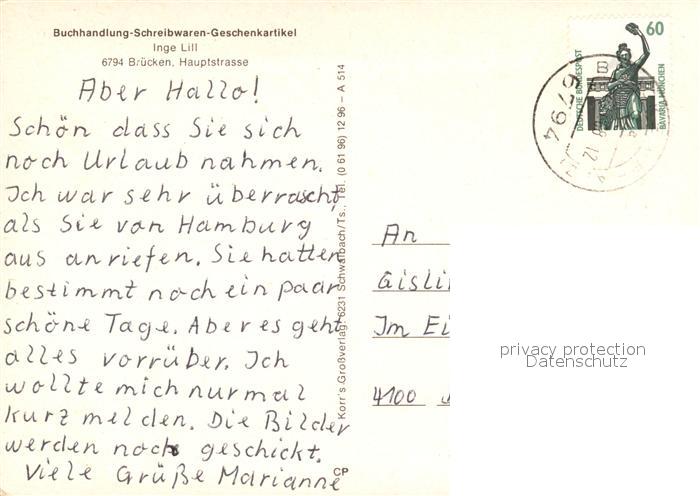 Buchhandlung-Schreibwaren-Geschenkartikel
Inge Lill
6794 Brücken, Hauptstrasse
Aber Hallo!
Schön dass Sie sich
noch Urlaub nahmen.
Ich war sehr überrascht,
als Sie von Hamburg
aus anriefen. Sie hatten
bestimmt noch ein paar
schöne Tage. Aber es geht
alles vorrüber. Ich
wollte mich nur mal
kurz melden. Die Bilder
werden noch geschickt.
Viele Grüße Marianne
Korr's Großverlag, 6231 Schwalbach/Ts., Tel. (0 61 96) 12 96 – A 514
CP
60
DEUTSCHE BUNDESPOST
BAVARIA MÜNCHEN
6794
12
An
Gisli
Im Ei
4100
privacy protection
Datenschutz